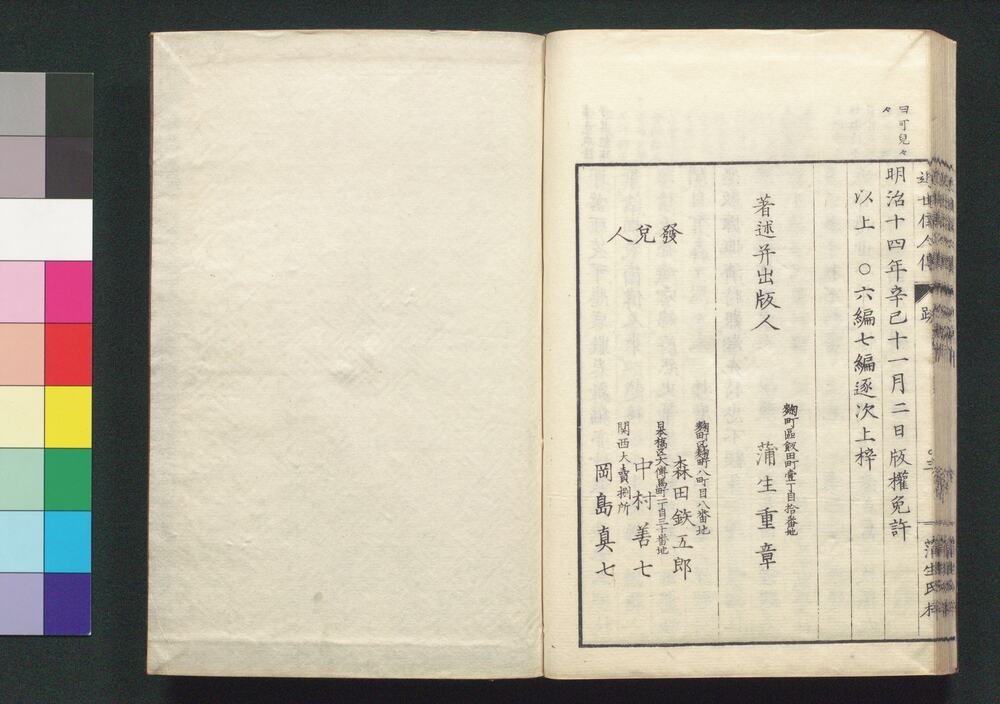 曰可兒々
々
近世偉人傳
跋
蒲生氏
明治十四年辛巳十一月二日版權免許
以上 ○六編七編逐次上梓
麹町區飯田町壹丁目拾番地
著述并出版人 蒲生重章
麹町区麹町八町目八番地
發兌人 森田鉄五郎
日本橋区大傳馬町二丁目三十番地
中村善七
関西大賣捌所
岡島真七